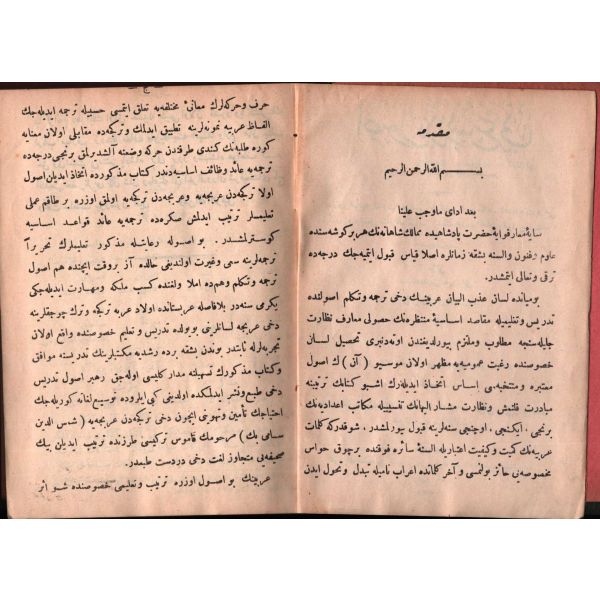 مقدمه
بسم الله الرحمن الرحيم
بعد اداى ماوجب علينا
سايهٔ معارفوايهٔ حضرت پادشاهيده ممالك شاهانه‌نك هر بر كوشه‌سنده
علوم وفنون والسنه بشقه زمانلره اصلا قياس قبول ايتميه‌جك درجه‌ده
ترقى وتعالى ايتمشدر.
بوميانده لسان عذب البيان عربينك دخى ترجمه وتكلم اصولنده
تدريس وتعليميله مقاصد اساسيهٔ منتظره‌نك حصولى معارف نظارت
جليله‌سنجه مطلوب وملتزم بيورلديغندن اوته‌دنبرى تحصيل لسان
خصوصنده رغبت عموميه‌يه مظهر اولان موسيو (آن) ك اصول
معتبره ومنتخبه‌سى اساس اتخاذ ايديله‌رك اشبو كتابك ترتيبنه
مبادرت قلنمش ونظارت مشار اليهانك تنسيبيله مكاتب اعداديه‌نك
برنجى، ايكنجى، اوچنجى سنه‌لرينه قبول بيورلمشدر. شوقدركه كلمات
عربيه‌نك كميت وكيفيت اعتباريله السنهٔ سائره فوقنده برچوق خواص
مخصوصه‌يى حائز بولنمسى وآخر كلماتده اعراب ناميله تبدل وتحول ايدن
ج
حرف وحركه‌لرك معانئ مختلفه‌يه تعلق ايتمسى حسبيله ترجمه ايديله‌جك
الفاظ عربيه نمونه‌لرينه تطبيق ايدلمك وتركيه‌ده مقابلى اولان معنايه
كوره طلبه‌نك كندى طرفندن حركه وضعنه آلشديرلمق برنجى درجه‌ده
ترجمه‌يه عائد وظائف اساسيه‌دندر كتاب مذكورده اتخاذ ايديلن اصول
اولا تركيه‌دن عربجه‌يه وعربجه‌دن تركيه‌يه اولمق اوزره بر طاقم عملى
تعليملر ترتيب ايدلش صكره‌ده ترجمه‌يه عائد قواعد اساسيه
كوسترلمشدر. بو اصوله رعايتله مذكور تعليملرك تحريرآ
ترجمه‌لرينه سعى وغيرت اولنديغى حالده آز بروقت ايچنده هم اصول
ترجمه وتكلم وهم‌ده املا ولغتده كسب ملكه ومهارت ايديله‌جكى
يكرمى سنه‌در بلافاصله عربستانده اولاد عربه تركجه وترك چوجقلرينه
دخى عربجه لسانلرينى بويولده تدريس وتعليم خصوصنده واقع اولان
تجربه‌لرله ثابتدر بوندن بشقه برده رشديه مكتبلرينك تدريسنه موافق
وكتاب مذكورك تسهيلنه مدار كليسى اوله‌جق رهبر اصول تدريس
دخى طبع ونشر ايدلمكده اولديغى كبى ايلروده توسيع لغاته كوريله‌جك
احتياجك تأمين وتهوينى ايچون دخى تركيه‌دن عربجه‌يه (شمس الدين
سامى بك) مرحومك قاموس تركيسى طرزنده ترتيب ايديلن بيك
صحيفه‌يى متجاوز لغت دخى دردست طبعدر.
عربينك بو اصول اوزره ترتيب وتعليمى خصوصنده شو اثر